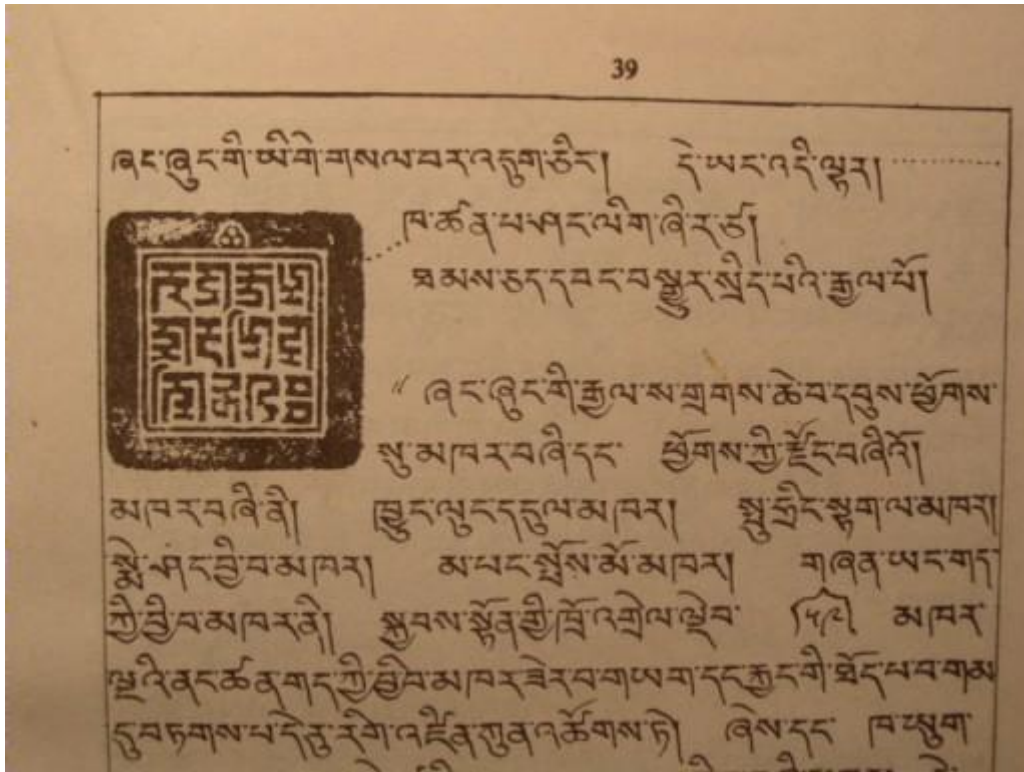 39
ཞང་ཞུང་གི་ཡི་གེ་གསལ་བར་འདུག་ཅིང་། དེ་ཡང་འདི་ལྟར།
ཁ་ཚན་པ་ཤང་ལིག་ཞི་ར་ཙ།
ཐམས་ཅད་དབང་བསྒྱུར་སྲིད་པའི་རྒྱལ་པོ།
༎ ཞང་ཞུང་གི་རྒྱལ་ས་གྲགས་ཆེབ་དབུས་ཕྱོགས་
སུ་མཁར་བཞི་དང་ ཕྱོགས་ཀྱི་རྫོང་བཞིའོ།
མཁར་བཞི་ནི། ཁྱུང་ལུང་དངུལ་མཁར། སྤུ་ཧྲིང་སྟག་ལ་མཁར།
སྨེ་ཤང་བྱི་བ་མཁར། མ་པང་སྤོས་མོ་མཁར། གཞན་ཡང་གད་
ཀྱི་བྱི་བ་མཁར་ནི། སྐྱབས་སྟོན་གྱི་ཁྲོ་འགྲེལ་ལྡེབ་ (༥༩) མཁར་
ལྔ་འི་ནང་ཚན་གད་ཀྱི་བྱི་བ་མཁར་ཟེར་བ་གཡག་དང་རྐྱང་གི་ཐོད་པ་བགམ
དུ་བཏགས་པ་དེནུ་རིགེ་འཛིན་ཀུན་འཚོགས་ཏེ། ཞེས་དང་ ཁ་ཡུག་